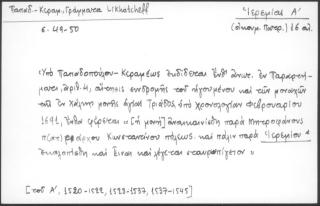 Παπαδ.-Κεραμ., Γράμματα Likhatcheff
Ἱερεμίας Α΄
σ. 49-50
(οἰκουμ. Πατρ.) 16 αἰ.
«Ὑπὸ Παπαδοπούλου-Κεραμέως ἐκδίδεται ἐνθ' ἀνωτ. ἐν Παραρτή-
ματι, ἀριθ. 4, αἰτήσει συνδρομῆς τοῦ ἡγουμένου καὶ τῶν μοναχῶν
τῆς ἐν Χάλκῃ μονῆς ἁγίας Τριάδος, ὑπὸ χρονολογίαν Φεβρουαρίου
1691, ἔνθα φέρεται «[ἡ μονὴ] ἀνακαινίσθη παρὰ Μητροφάνους
π(ατ)ριάρχου Κωνσταντίνου πόλεως, καὶ πάλιν παρὰ Ἱερεμίου
ἐκαλοπίσθη καὶ εἶναι καὶ λέγεται σταυροπίγειον»
[τοῦ Α΄, 1520-1522, 1523-1537, 1537-1545]